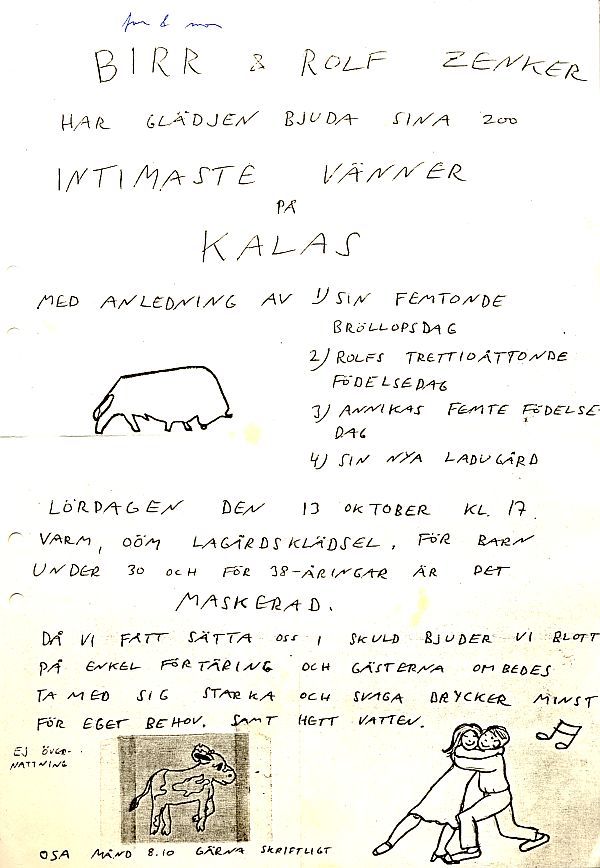 far & mor
BIRR & ROLF ZENKER
HAR GLÄDJEN BJUDA SINA 200
INTIMASTE VÄNNER
PÅ
KALAS
MED ANLEDNING AV 1) SIN FEMTONDE
BRÖLLOPSDAG
2) ROLFS TRETTIOÅTTONDE
FÖDELSEDAG
3) ANNIKAS FEMTE FÖDELSE-
DAG
4) SIN NYA LADUGÅRD
LÖRDAGEN DEN 13 OKTOBER KL. 17.
VARM, OÖM LAGÅRDSKLÄDSEL. FÖR BARN
UNDER 30 OCH FÖR 38-ÅRINGAR ÄR DET
MASKERAD.
DÅ VI FÅTT SÄTTA OSS I SKULD BJUDER VI BLOTT
PÅ ENKEL FÖRTÄRING OCH GÄSTERNA OMBEDES
TA MED SIG STARKA OCH SVAGA DRYCKER MINST
FÖR EGET BEHOV. SAMT HETT VATTEN.
EJ ÖVER-
NATTNING
OSA MÅND 8.10 GÄRNA SKRIFTLIGT